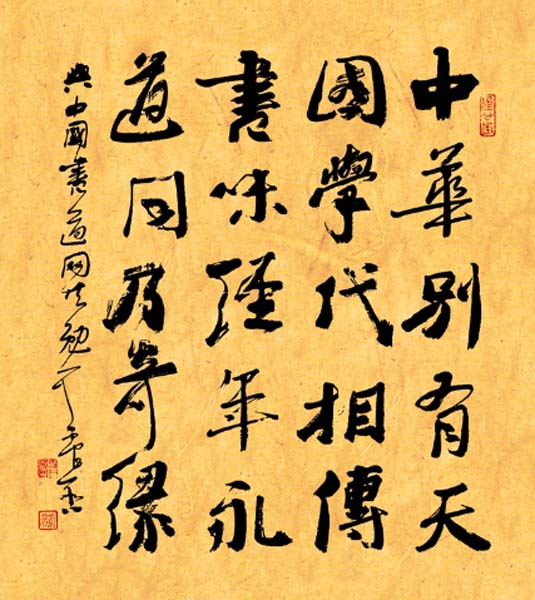 中華別有天
國學代相傳
書味經年永
道同乃奇緣
與中國書道網共勉